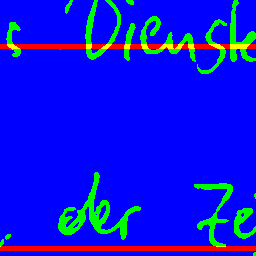 s Dienste
der Ze